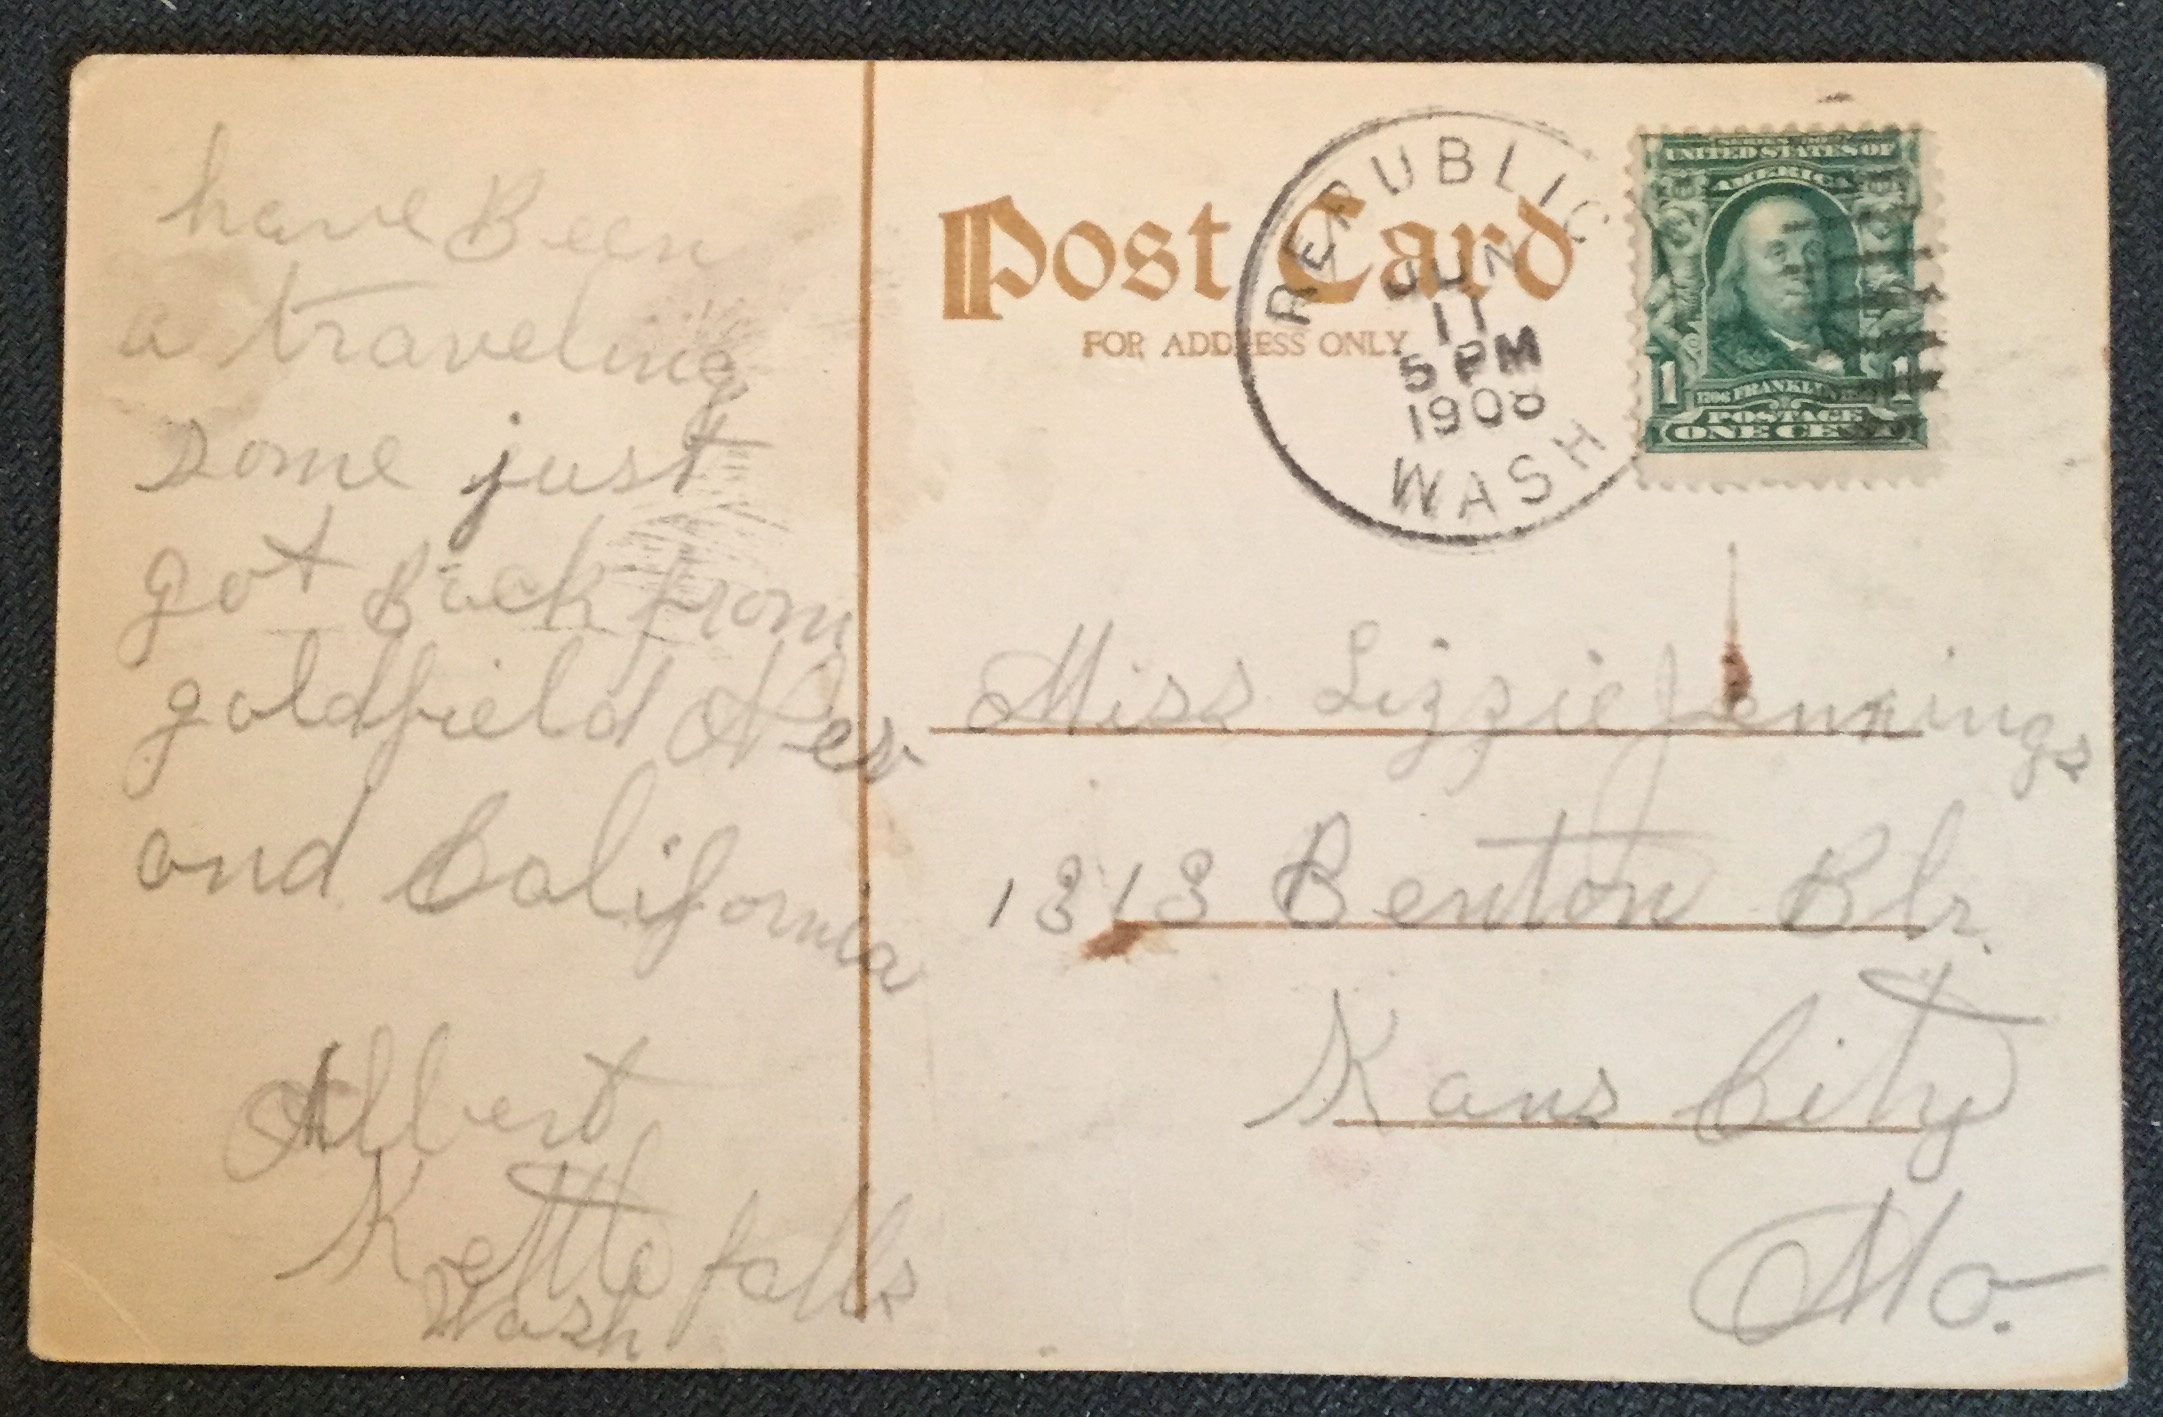 have Been
a traveling
some just
got Back from
goldfield Nev
and California
Albert
Kettle falls
Wash
Post Card
FOR ADDRESS ONLY
REPUBLIC
JUN
11
5 PM
1908
WASH
SERIES 1902
UNITED STATES OF
AMERICA
1 1
1706 FRANKLIN 1790
POSTAGE
ONE CENT
Miss Lizzie Jennings
1313 Benton Blv.
Kans City
Mo.